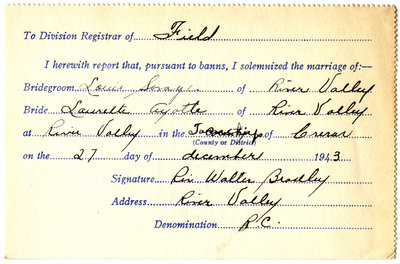 To Division Registrar of Field
I herewith report that, pursuant to banns, I solemnized the marriage of:—
Bridegroom Louis of River Valley
Bride Laurette Ayotte of River Valley
at River Valley in the Township of Crerar
(County or District)
on the 27 day of december 1943
Signature Rev Walter Bradley
Address River Valley
Denomination R.C.